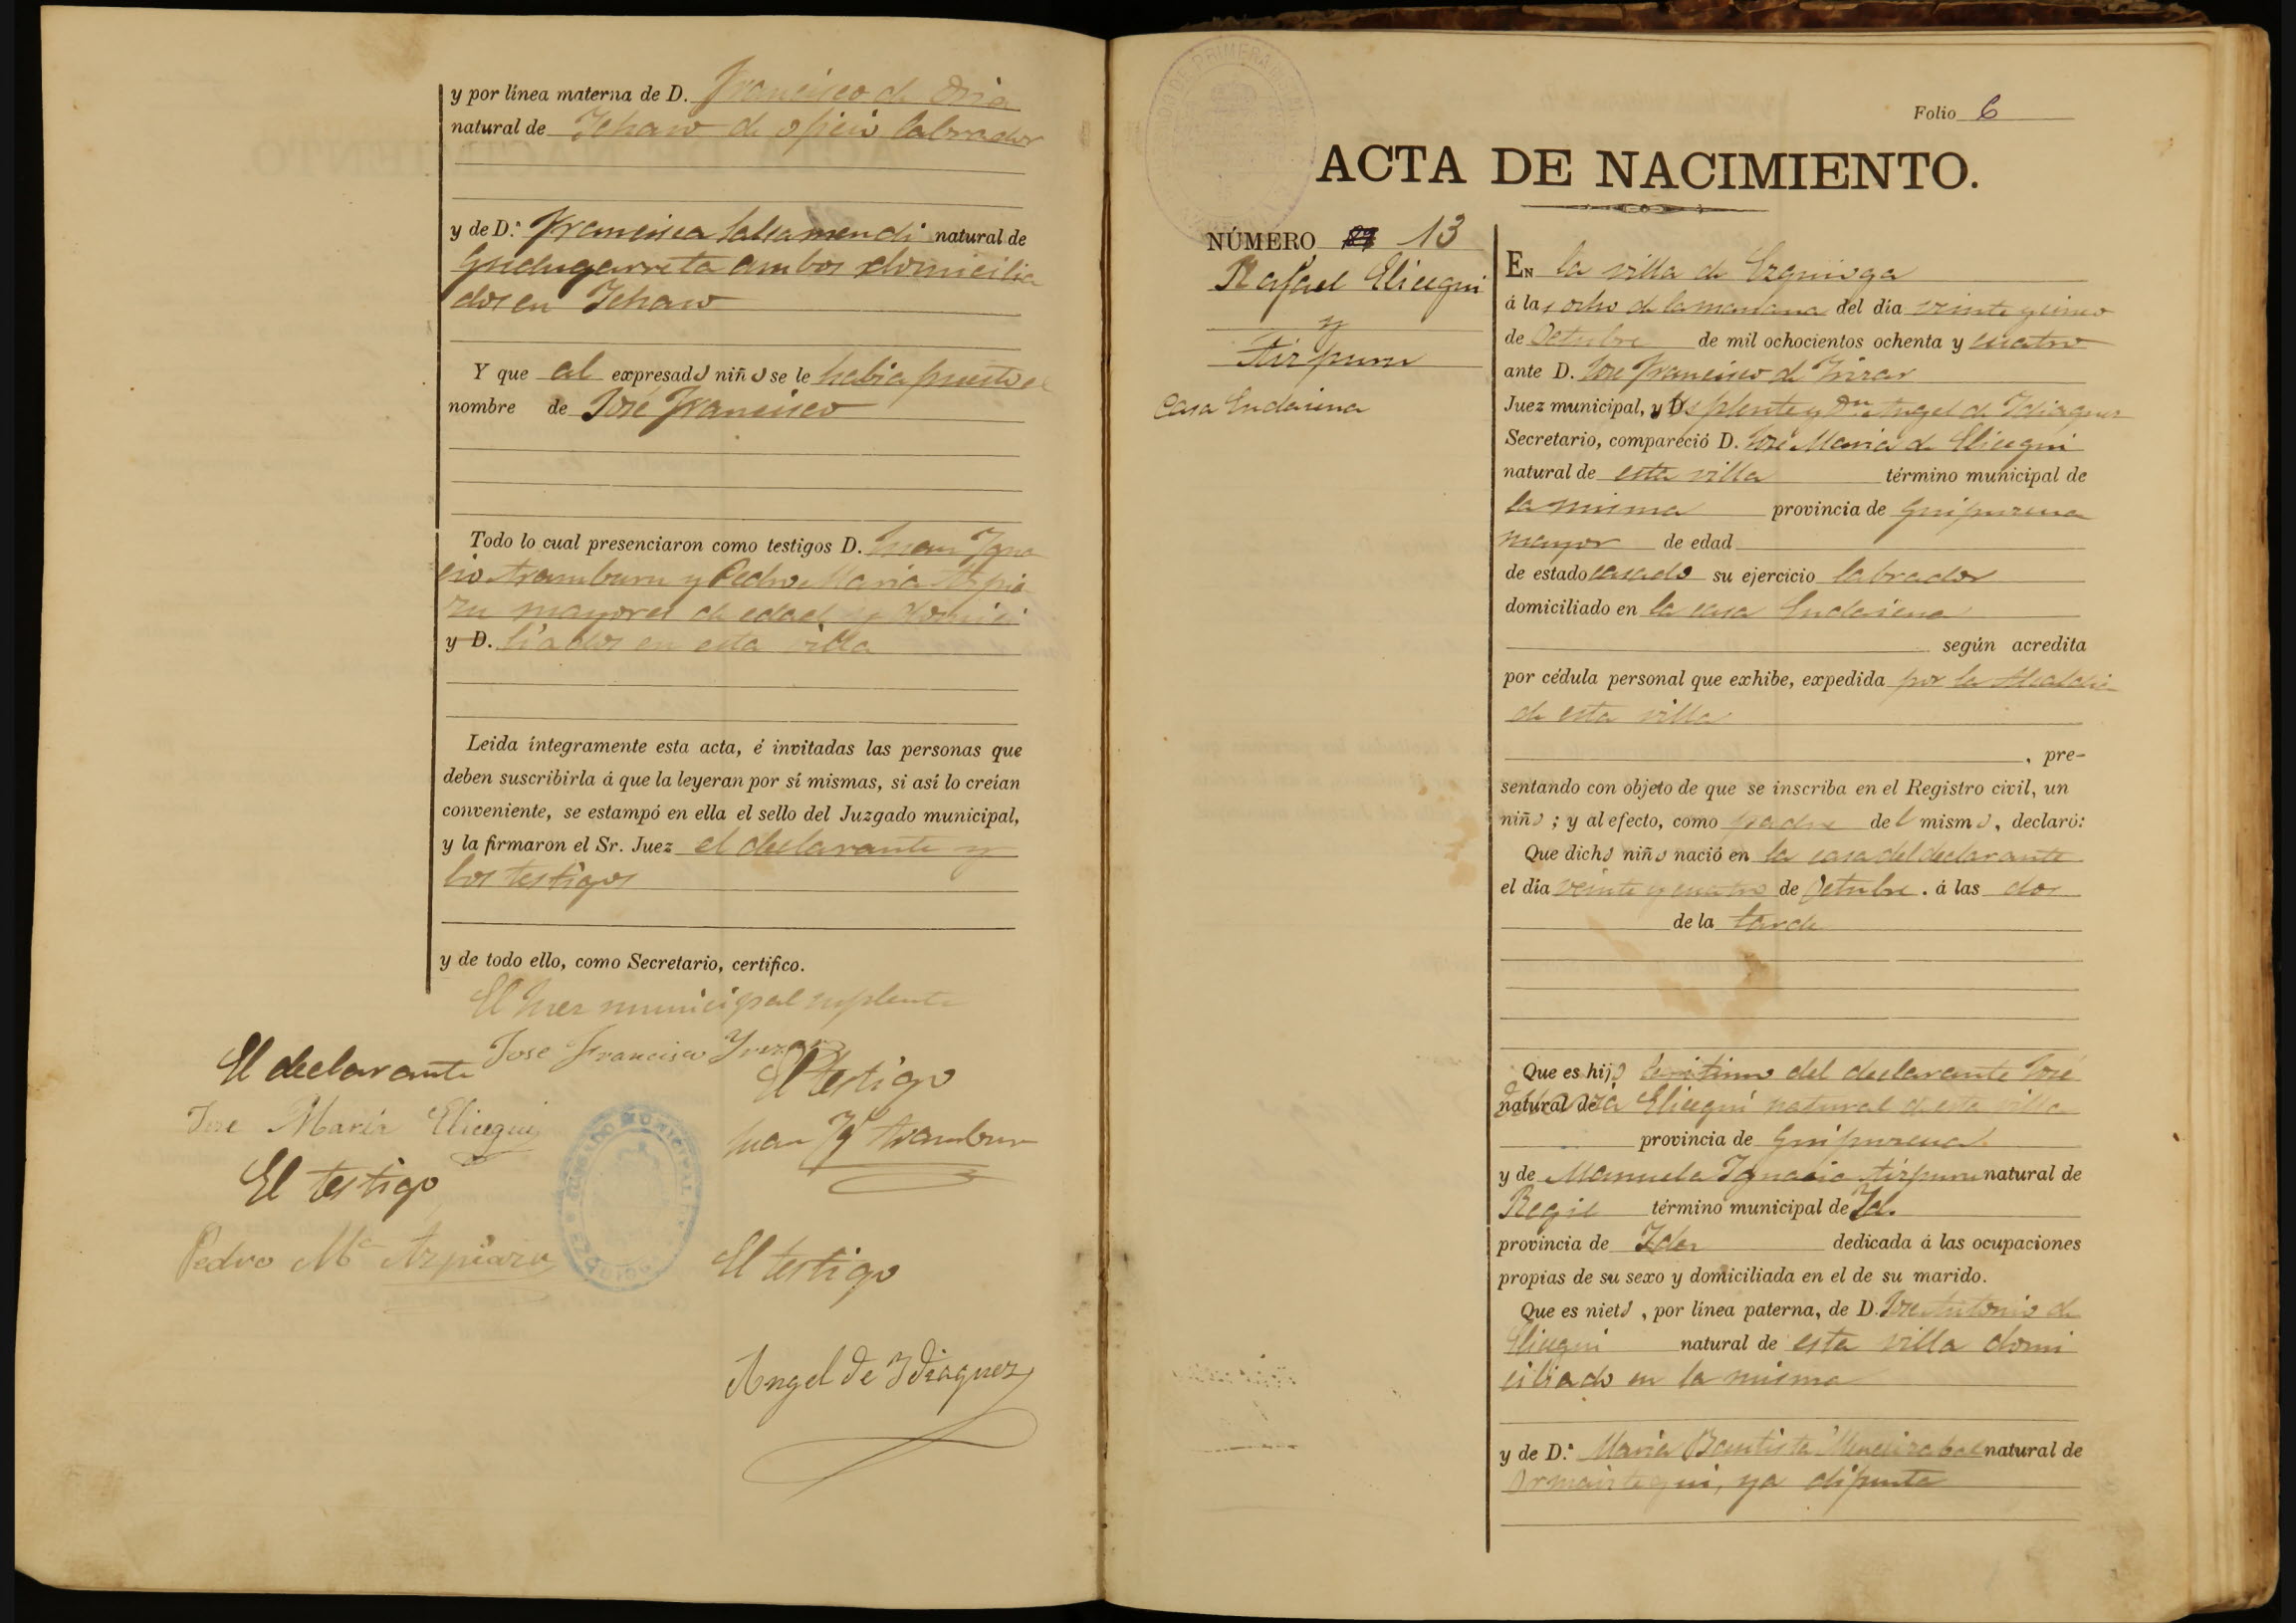 y por línea materna de D. Francisco de Oria
natural de Ichaso de oficio labrador
y de D.ª Francisca Salsamendi natural de
Gudugarreta ambos domicilia
dos en Ichaso
Y que al expresado niño se le habia puesto el
nombre de José Francisco
Todo lo cual presenciaron como testigos D. Juan Igna
cio Aramburu y Pedro Maria Azpia
zu mayores de edad y domici
y D. liados en esta villa
Leida íntegramente esta acta, é invitadas las personas que
deben suscribirla á que la leyeran por sí mismas, si así lo creían
conveniente, se estampó en ella el sello del Juzgado municipal,
y la firmaron el Sr. Juez el declarante y
los testigos
y de todo ello, como Secretario, certifico.
El Juez municipal suplente
Jose Francisco Yrizar
El declarante
Jose María Elicegui
El testigo
Juan Yg.º Aramburu
El testigo
Pedro M.ª Azpiazu
El testigo
Angel de Ydiaquez
JUZGADO MUNICIPAL
Folio 6
ACTA DE NACIMIENTO.
NÚMERO 13
Rafael Elicegui
y
Aizpuru
Casa
EN la villa de Ezquioga
á las ocho de la mañana del dia veinte y cinco
de Octubre de mil ochocientos ochenta y cuatro
ante D. José Francisco de Irizar
Juez municipal, y D. suplente y Dn. Angel de Idiaquez
Secretario, compareció D. José Maria de Elicegui
natural de esta villa término municipal de
la misma provincia de Guipuzcua
mayor de edad
de estado casado su ejercicio labrador
domiciliado en la casa
según acredita
por cédula personal que exhibe, expedida por la Alcaldia
de esta villa
, pre-
sentando con objeto de que se inscriba en el Registro civil, un
niño; y al efecto, como padre del mismo, declaró:
Que dicho niño nació en la casa del declarante
el dia veinte y cuatro de Octubre. á las dos
de la tarde
Que es hijo legitimo del declarante José
natural de Maria Elicegui natural de esta villa
provincia de Guipuzcua
y de Manuela Ignacia Aizpuru natural de
Regil término municipal de Id.
provincia de Idem dedicada á las ocupaciones
propias de su sexo y domiciliada en el de su marido.
Que es nieto, por línea paterna, de D. José Antonio de
Elicegui natural de esta villa domi
ciliado en la misma
y de D.ª Maria Bautista Mendizabal natural de
Ormaiztegui, ya difunta